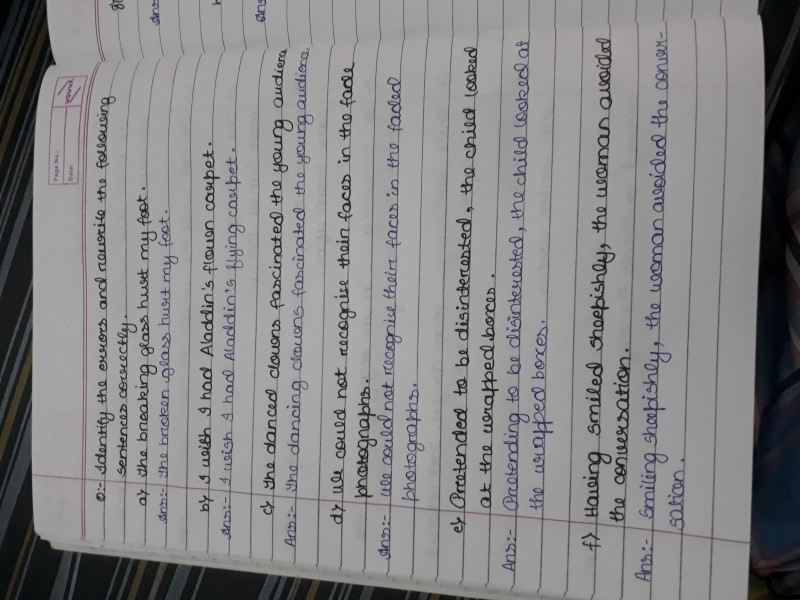 Page No.:
Date:
YOUVA
Q:- Identify the errors and rewrite the following
sentences correctly.
a) The breaking glass hurt my foot.
Ans:- The broken glass hurt my foot.
b) I wish I had Aladdin's flown carpet.
Ans:- I wish I had Aladdin's flying carpet.
c) The danced clowns fascinated the young audience
Ans:- The dancing clowns fascinated the young audience.
d) We could not recognise their faces in the fade
photographs.
Ans:- We could not recognise their faces in the faded
photographs.
e) Pretended to be disinterested, the child looked
at the wrapped boxes.
Ans:- Pretending to be disinterested, the child looked at
the wrapped boxes.
f) Having smiled sheepishly, the woman avoided
the conversation.
Ans:- Smiling sheepishly, the woman avoided the conver-
sation.